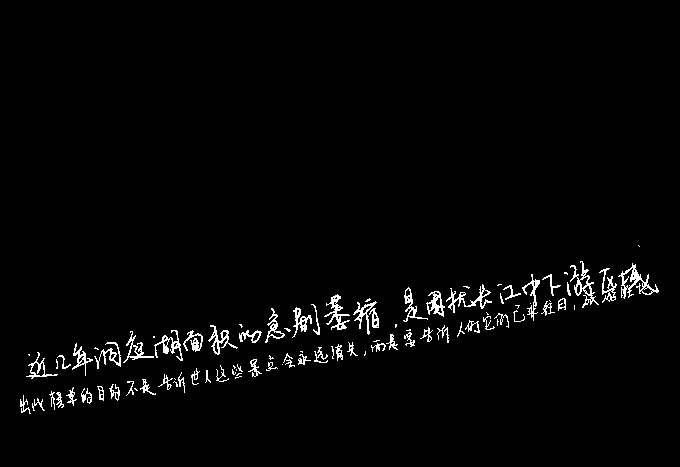 近几年洞庭湖面积的急剧萎缩,是困扰长江中下游区域
出此榜单的目的不是告诉世人这些景点会永远消失,而是要告诉人们它们已非往日,